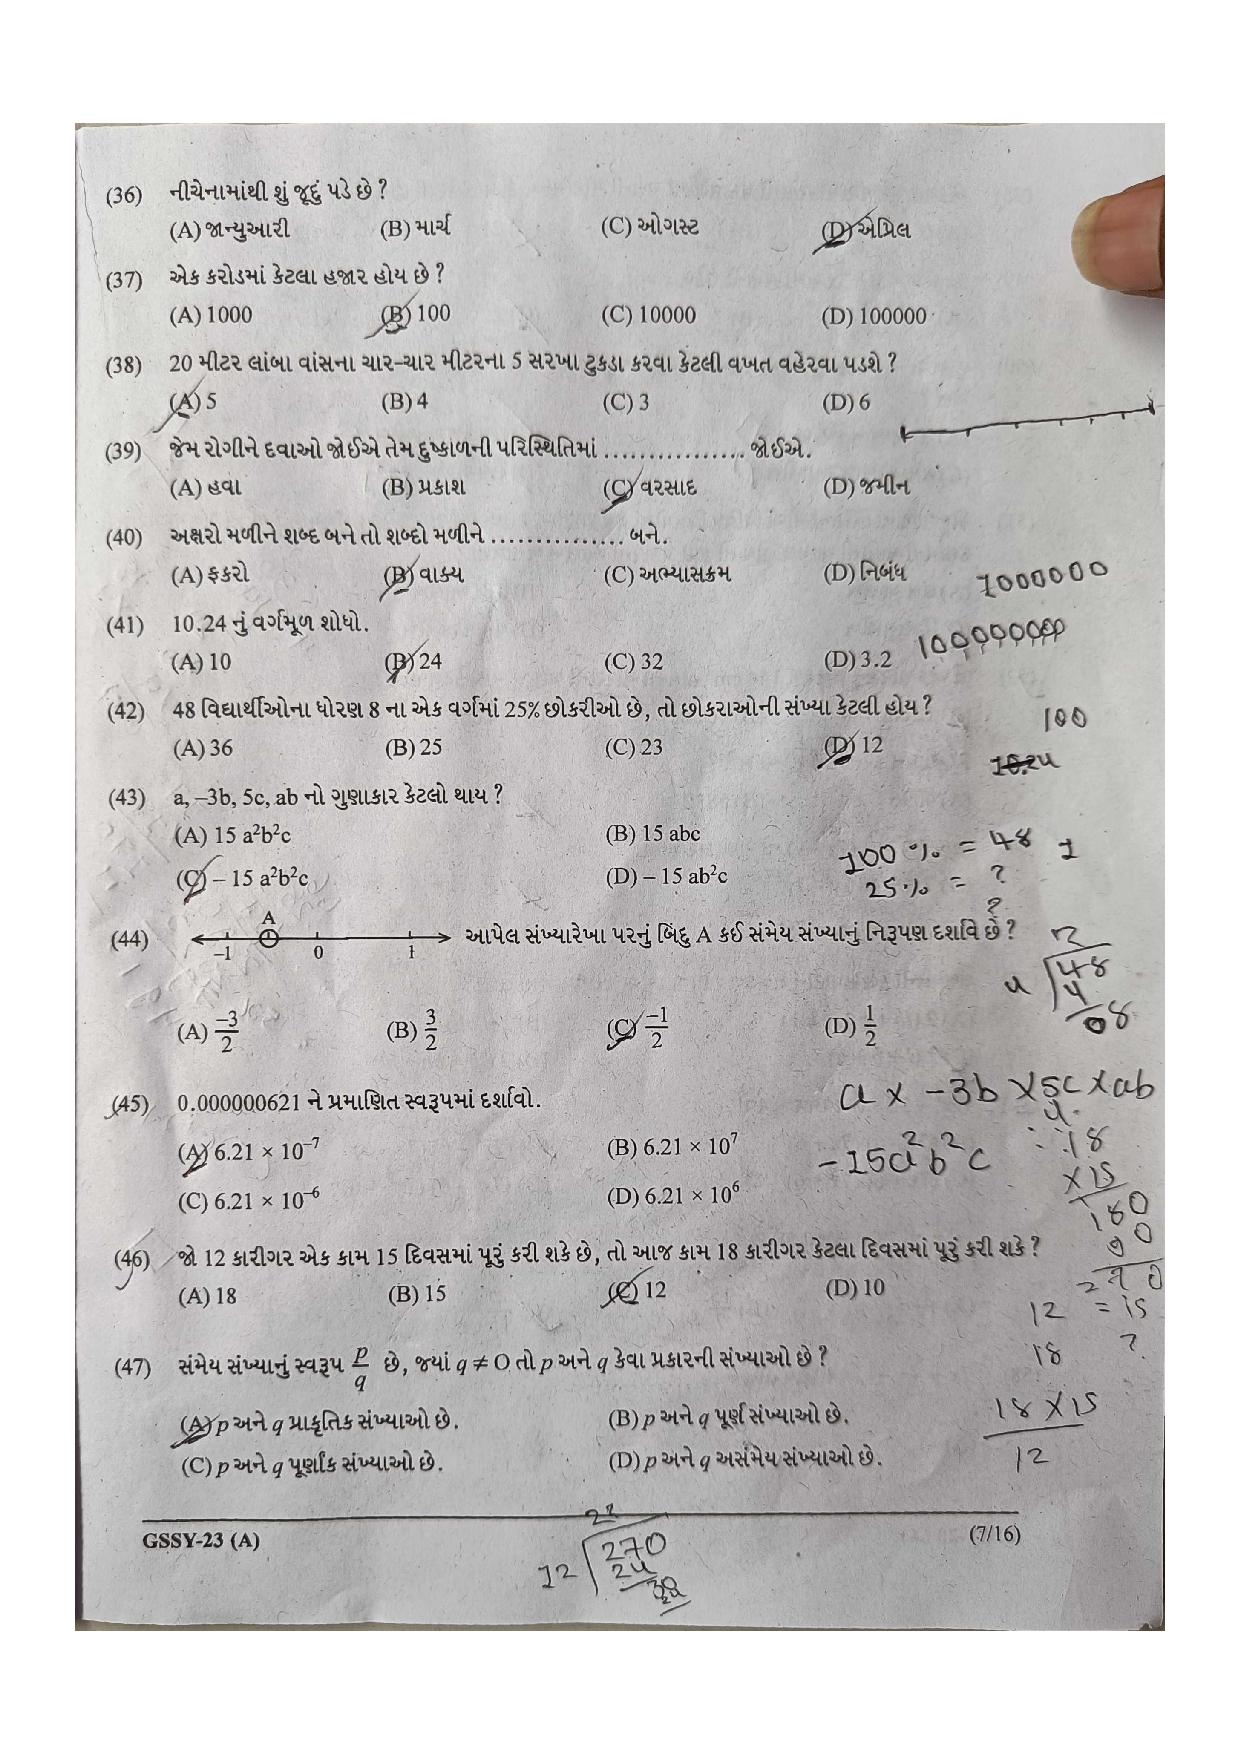 (36) નીચેનામાંથી શું જૂદું પડે છે ?
(A) જાન્યુઆરી (B) માર્ચ (C) ઓગસ્ટ (D) એપ્રિલ
(37) એક કરોડમાં કેટલા હજાર હોય છે ?
(A) 1000 (B) 100 (C) 10000 (D) 100000
(38) 20 મીટર લાંબા વાંસના ચાર-ચાર મીટરના 5 સરખા ટુકડા કરવા કેટલી વખત વહેરવા પડશે ?
(A) 5 (B) 4 (C) 3 (D) 6
(39) જેમ રોગીને દવાઓ જોઈએ તેમ દુષ્કાળની પરિસ્થિતિમાં ............... જોઈએ.
(A) હવા (B) પ્રકાશ (C) વરસાદ (D) જમીન
(40) અક્ષરો મળીને શબ્દ બને તો શબ્દો મળીને ............... બને.
(A) ફકરો (B) વાક્ય (C) અભ્યાસક્રમ (D) નિબંધ
1000000
(41) 10.24 નું વર્ગમૂળ શોધો.
(A) 10 (B) 24 (C) 32 (D) 3.2
(42) 48 વિદ્યાર્થીઓના ધોરણ 8 ના એક વર્ગમાં 25% છોકરીઓ છે, તો છોકરાઓની સંખ્યા કેટલી હોય ?
100
(A) 36 (B) 25 (C) 23 (D) 12
10.24
(43) a, –3b, 5c, ab નો ગુણાકાર કેટલો થાય ?
(A) 15 a²b²c (B) 15 abc
100 % = 48 1
(C) – 15 a²b²c (D) – 15 ab²c
25 % = ?
?
(44) A –1 0 1 આપેલ સંખ્યારેખા પરનું બિંદુ A કઈ સંમેય સંખ્યાનું નિરૂપણ દર્શાવે છે ?
4 48
4
08
(A) –3/2 (B) 3/2 (C) –1/2 (D) 1/2
a x -3b x 5c x ab
(45) 0.000000621 ને પ્રમાણિત સ્વરૂપમાં દર્શાવો.
(A) 6.21 × 10⁻⁷ (B) 6.21 × 10⁷
-15a²b²c
18
x 15
180
90
270
(C) 6.21 × 10⁻⁶ (D) 6.21 × 10⁶
(46) જો 12 કારીગર એક કામ 15 દિવસમાં પૂરું કરી શકે છે, તો આજ કામ 18 કારીગર કેટલા દિવસમાં પૂરું કરી શકે ?
(A) 18 (B) 15 (C) 12 (D) 10
12 = 15
18 ?
(47) સંમેય સંખ્યાનું સ્વરૂપ p/q છે, જ્યાં q ≠ O તો p અને q કેવા પ્રકારની સંખ્યાઓ છે ?
(A) p અને q પ્રાકૃતિક સંખ્યાઓ છે. (B) p અને q પૂર્ણ સંખ્યાઓ છે.
18 x 15
12
(C) p અને q પૂર્ણાંક સંખ્યાઓ છે. (D) p અને q અસંમેય સંખ્યાઓ છે.
GSSY-23 (A) (7/16)
12 270
24